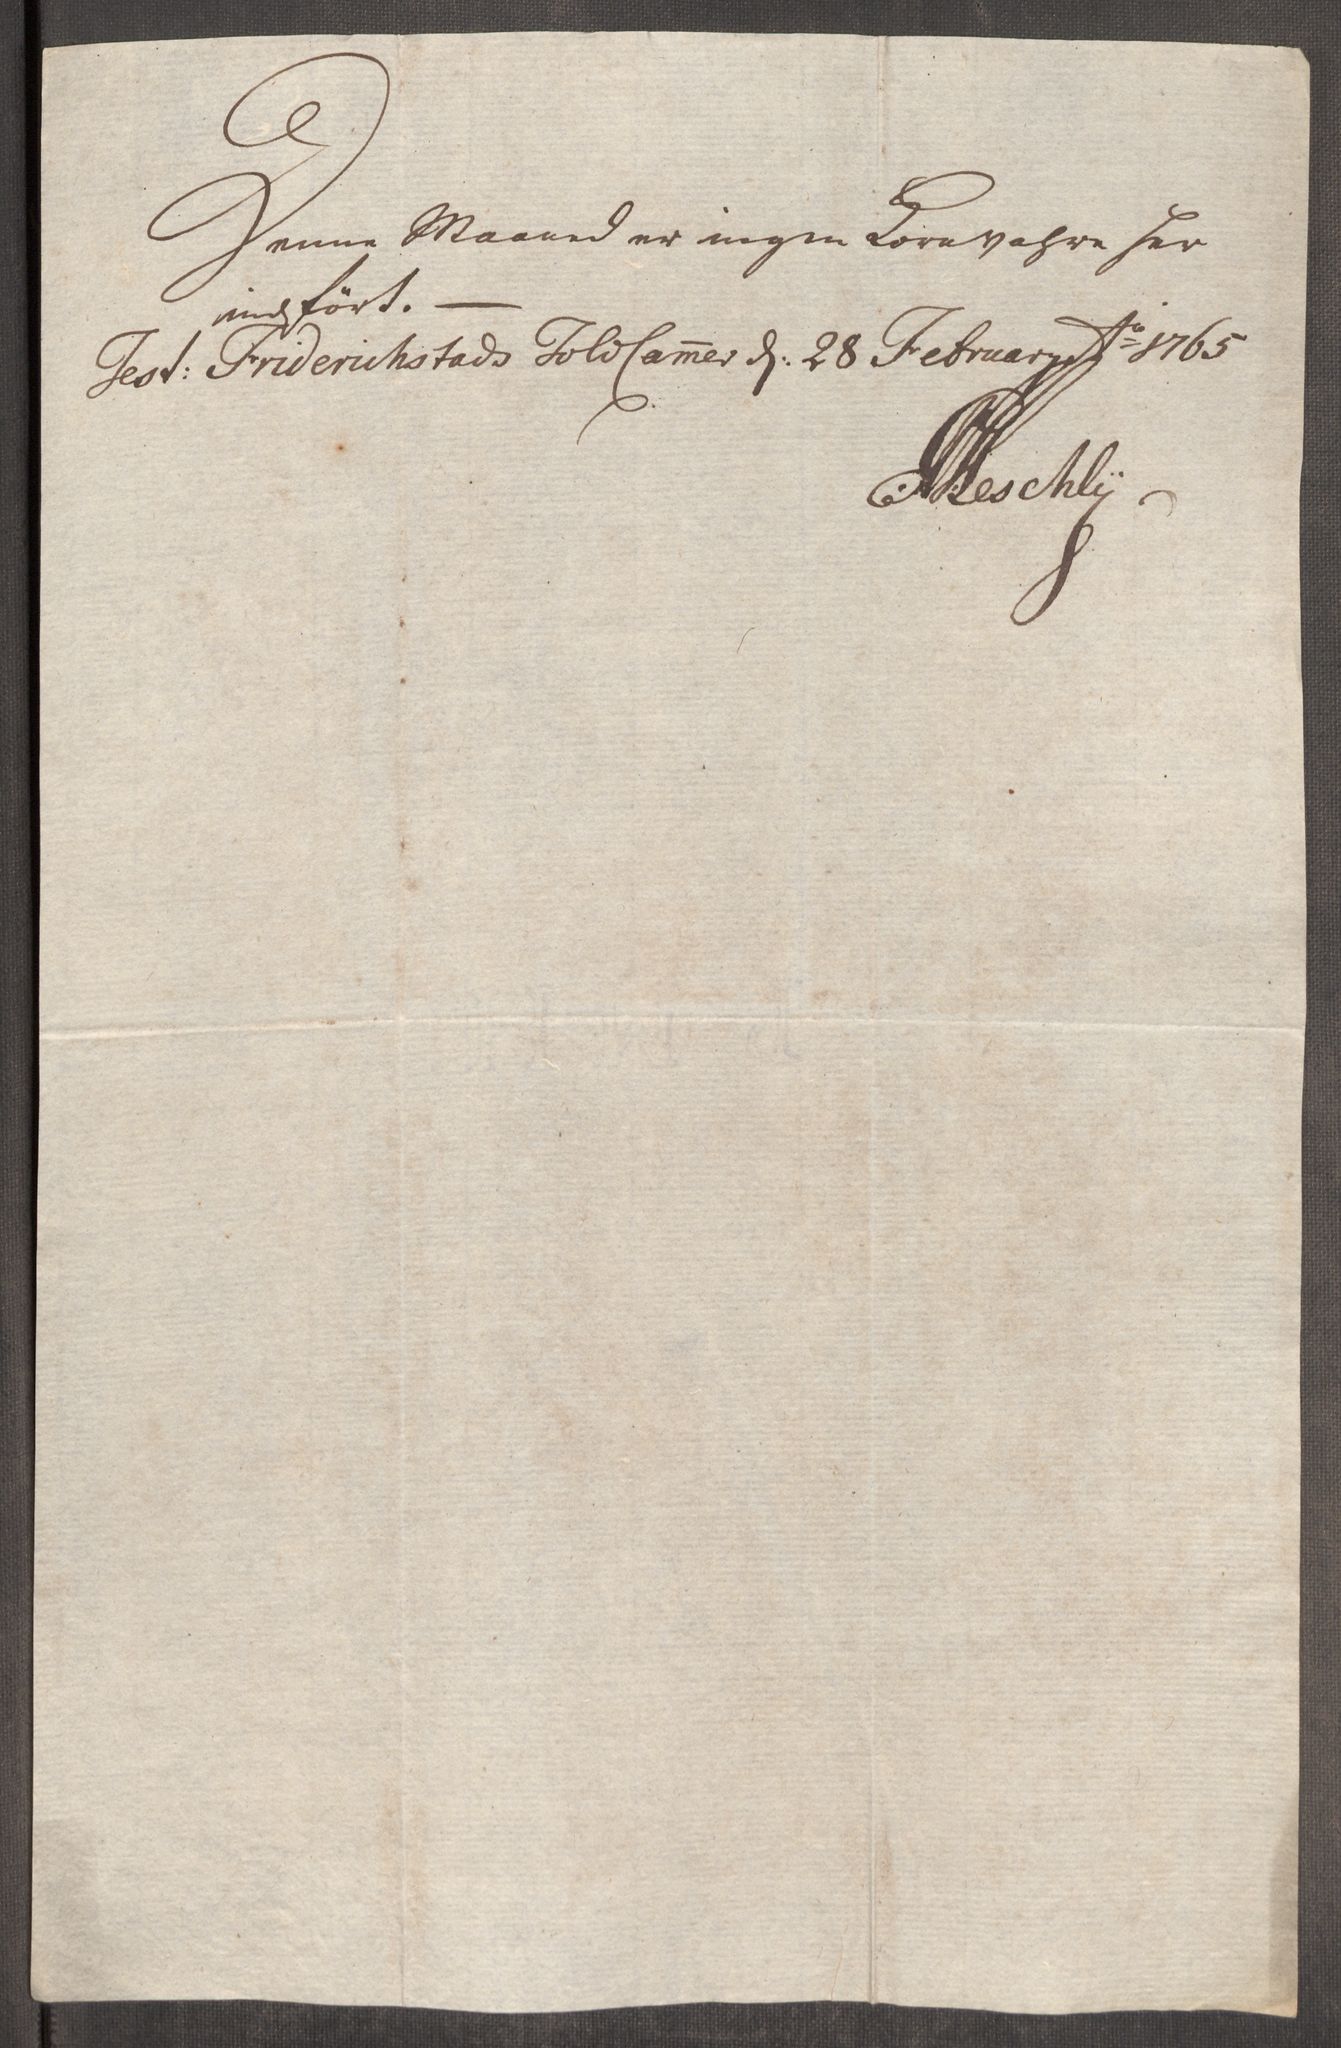 Denne Maaned er ingen Kornvahre her
indført. —
Test: Friderichstads Told Cammer d: 28 February Ao 1765